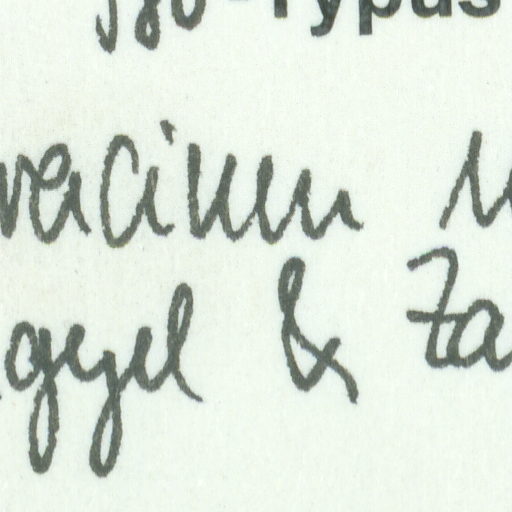 Iso-Typus
racium
gyel & Za